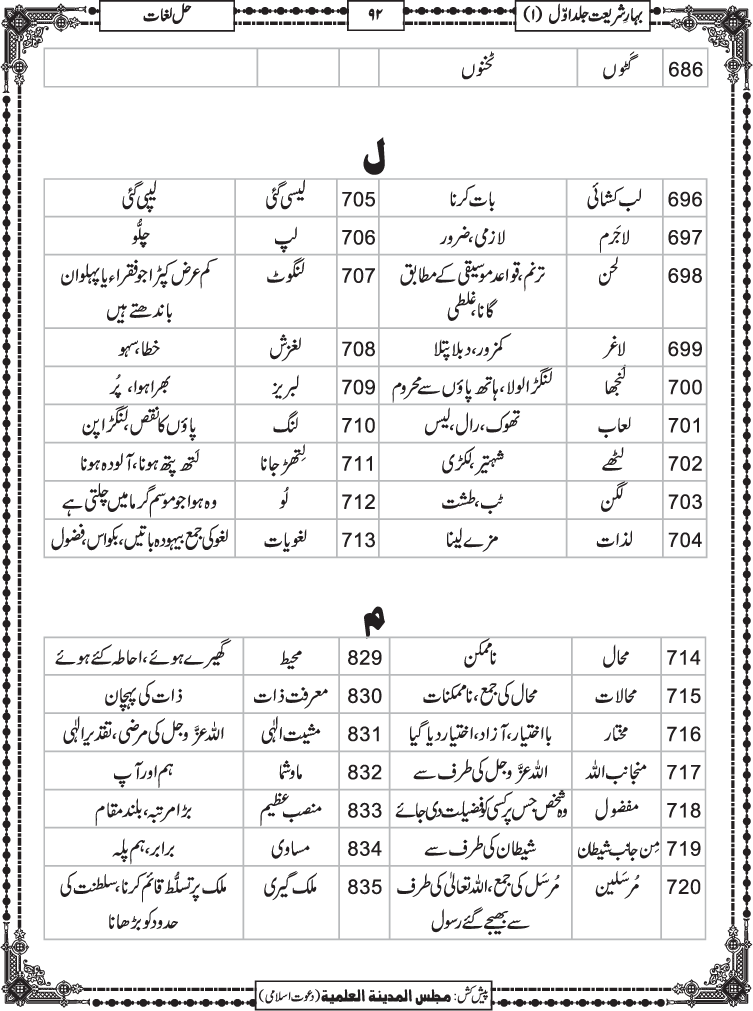 بہارِ شریعت جلد اوّل (۱)
۹۲
حل لغات
686 گٹوں ٹخنوں
ل
696 لب کشائی بات کرنا 705 لیسی گئی لیپی گئی
697 لاجَرم لازمی، ضرور 706 لپ چلُّو
698 لحن ترنم، قواعد موسیقی کے مطابق 707 لنگوٹ کم عرض کپڑا جو فقراء یا پہلوان
گانا، غلطی باندھتے ہیں
699 لاغر کمزور، دبلا پتلا 708 لغزش خطا، سہو
700 لُنجھا لنگڑا لولا، ہاتھ پاؤں سے محروم 709 لبریز بھرا ہوا، پُر
701 لعاب تھوک، رال، لیس 710 لنگ پاؤں کا نقص، لنگڑا پن
702 لٹھے شہتیر، لکڑی 711 لِتھڑ جانا لَتھ پَتھ ہونا، آلودہ ہونا
703 لگن ٹب، طشت 712 لُو وہ ہوا جو موسم گرما میں چلتی ہے
704 لذات مزے لینا 713 لغویات لغو کی جمع بیہودہ باتیں، بکواس، فضول
م
714 محال ناممکن 829 محیط گھیرے ہوئے، احاطہ کئے ہوئے
715 محالات محال کی جمع، ناممکنات 830 معرفت ذات ذات کی پہچان
716 مختار بااختیار، آزاد، اختیار دیا گیا 831 مشیت الٰہی اللہ عزَّ وجل کی مرضی، تقدیر الٰہی
717 منجانب اللہ اللہ عزَّ وجل کی طرف سے 832 ماوشما ہم اور آپ
718 مفضول وہ شخص جس پر کسی کو فضیلت دی جائے 833 منصب عظیم بڑا مرتبہ، بلند مقام
719 مِن جانب شیطان شیطان کی طرف سے 834 مساوی برابر، ہم پلہ
720 مُرسَلین مُرسَل کی جمع، اللہ تعالیٰ کی طرف 835 ملک گیری ملک پر تسلُّط قائم کرنا، سلطنت کی
سے بھیجے گئے رسول حدود کو بڑھانا
پیش کش: مجلس المدینۃ العلمیۃ (دعوت اسلامی)